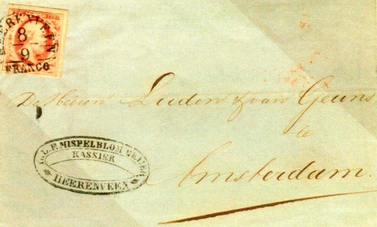 HEERENVEEN
8
9
FRANCO
De Heeren Luden & van Geuns
te
Amsterdam.
MISPELBLOM
KASSIER
HEERENVEEN